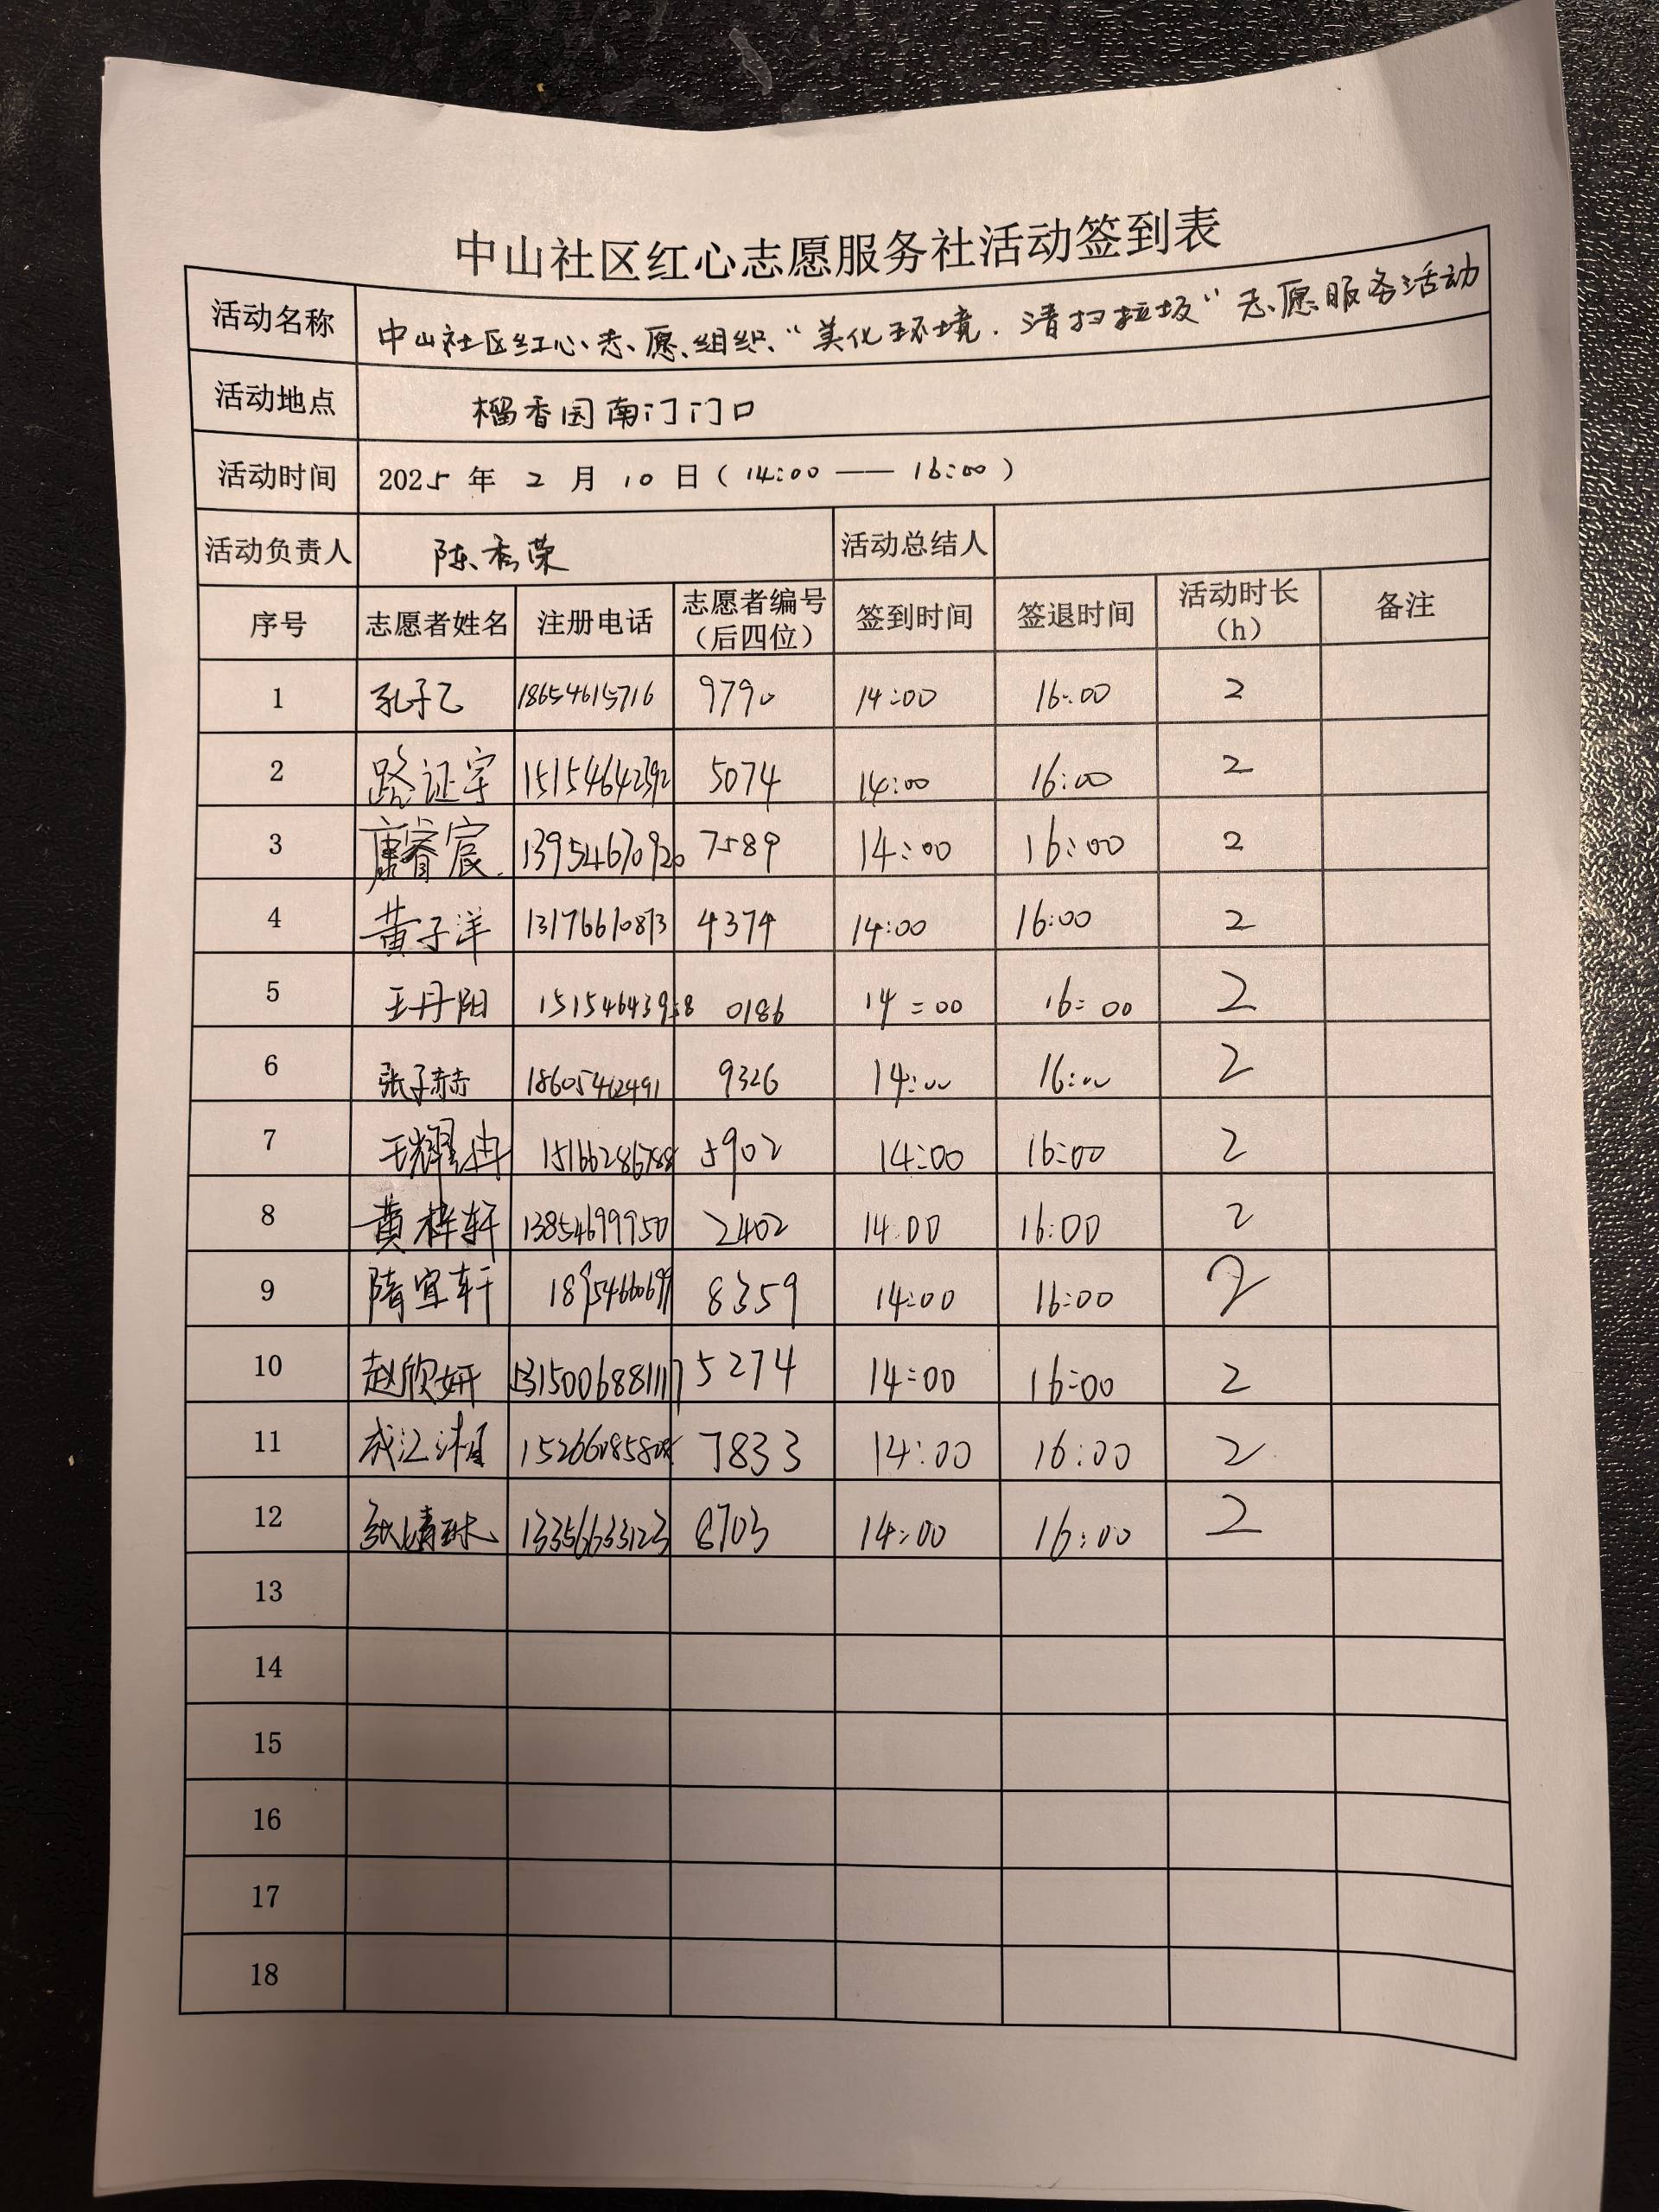 中山社区红心志愿服务社活动签到表
活动名称 中山社区红心志愿组织"美化环境.清扫垃圾"志愿服务活动
活动地点 榴香园南门门口
活动时间 2025 年 2 月 10 日（14:00 —— 16:00）
活动负责人 陈秀荣 活动总结人
序号 志愿者姓名 注册电话 志愿者编号（后四位） 签到时间 签退时间 活动时长（h） 备注
1 孔子乙 18654615716 9790 14:00 16:00 2
2 路证宇 15154642392 5074 14:00 16:00 2
3 唐睿宸 13954670920 7589 14:00 16:00 2
4 黄子洋 13176610873 4374 14:00 16:00 2
5 王丹阳 0186 14:00 16:00 2
6 张子赫 18605462491 9326 14:00 16:00 2
7 王耀冉 15166286788 5902 14:00 16:00 2
8 黄梓轩 13854699950 2402 14:00 16:00 2
9 隋宜轩 8359 14:00 16:00 2
10 赵欣妍 5274 14:00 16:00 2
11 7833 14:00 16:00 2
12 张婧琳 13356633123 8703 14:00 16:00 2
13
14
15
16
17
18